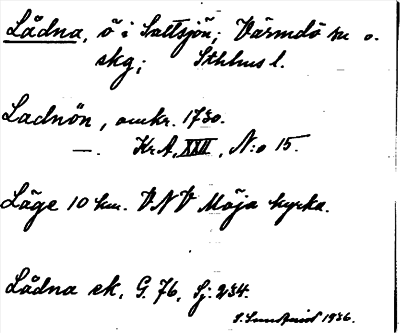 Lådna, ö i Saltsjön; Värmdö sn o.
skg; Sthlms l.
Ladnön, omkr. 1730.
—. Kr.A, XXII, N:o 15.
Läge 10 km. VNV Möja kyrka.
Lådna ek. G. 76, Sj. 234.
1936.